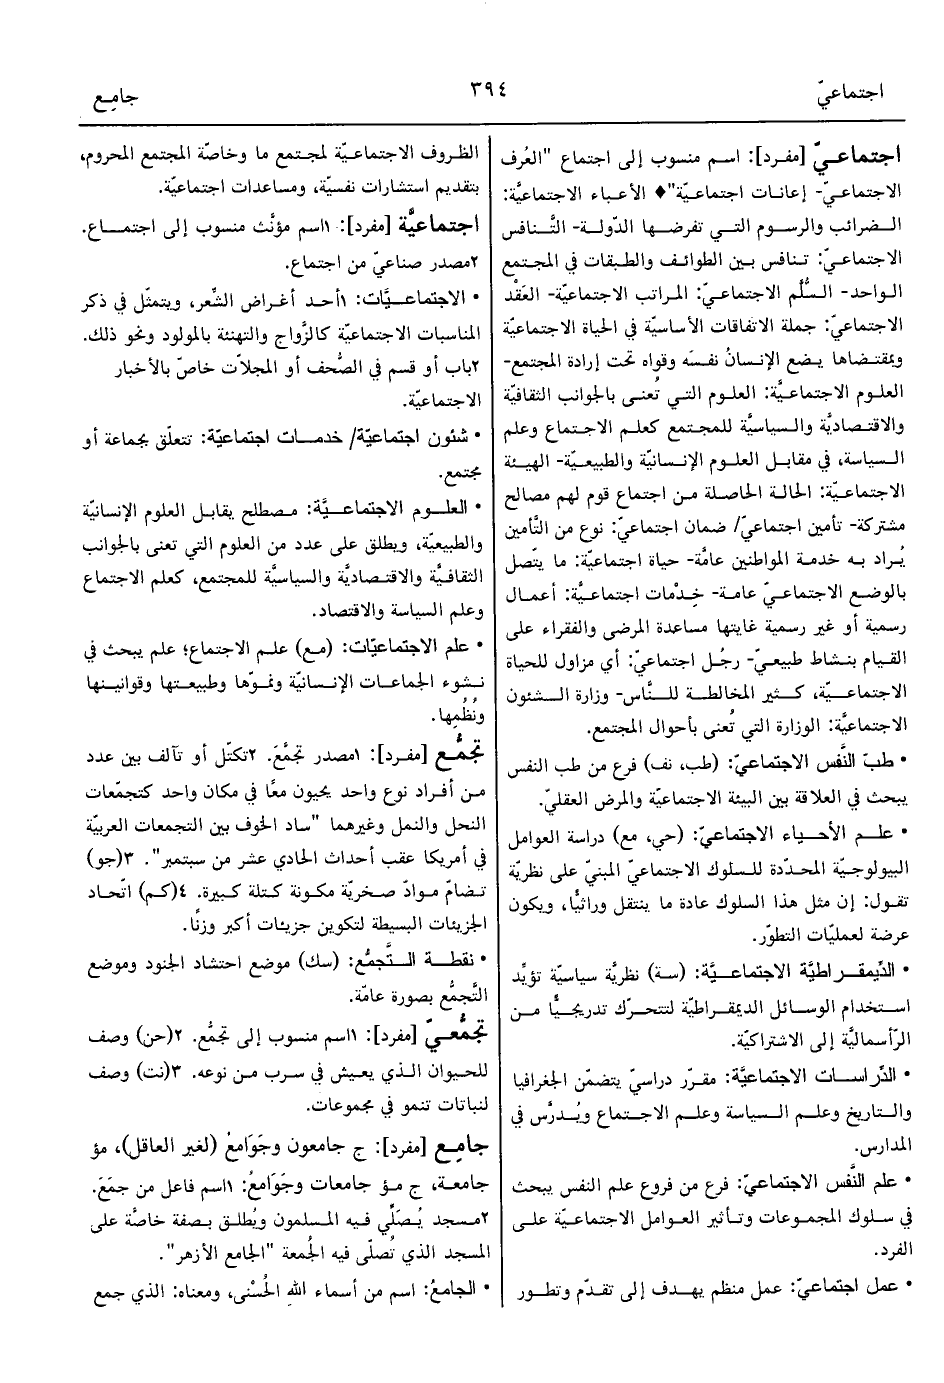 اجتماعيّ
٣٩٤
جامِع
اجتماعيّ [مفرد]: اسم منسوب إلى اجتماع "العُرف
الاجتماعيّ- إعانات اجتماعيّة"♦ الأعباء الاجتماعيَّة:
الضرائب والرسوم التي تفرضها الدّولة- التَّنافس
الاجتماعيّ: تنافس بين الطوائف والطبقات في المجتمع
الواحد- السُّلم الاجتماعيّ: المراتب الاجتماعيّة- العَقْد
الاجتماعيّ: جملة الاتفاقات الأساسيّة في الحياة الاجتماعيّة
وبمقتضاها يضع الإنسانُ نفسَه وقواه تحت إرادة المجتمع-
العلوم الاجتماعيَّة: العلوم التي تُعنى بالجوانب الثقافيّة
والاقتصاديَّة والسياسيَّة للمجتمع كعلم الاجتماع وعلم
السياسة، في مقابل العلوم الإنسانيّة والطبيعيّة- الهيئة
الاجتماعيَّة: الحالة الحاصلة من اجتماع قوم لهم مصالح
مشتركة- تأمين اجتماعيّ/ ضمان اجتماعيّ: نوع من التَّأمين
يُراد به خدمة المواطنين عامَّة- حياة اجتماعيَّة: ما يتّصل
بالوضع الاجتماعيّ عامة- خِدْمات اجتماعيَّة: أعمال
رسمية أو غير رسمية غايتها مساعدة المرضى والفقراء على
القيام بنشاط طبيعيّ- رجُل اجتماعيّ: أي مزاول للحياة
الاجتماعيّة، كثير المخالطة للنَّاس- وزارة الشئون
الاجتماعيَّة: الوزارة التي تُعنى بأحوال المجتمع.
• طبّ النَّفس الاجتماعيّ: (طب، نف) فرع من طب النفس
يبحث في العلاقة بين البيئة الاجتماعيّة والمرض العقليّ.
• علم الأحياء الاجتماعيّ: (حي، مع) دراسة العوامل
البيولوجيّة المحدّدة للسلوك الاجتماعيّ المبنيّ على نظريّة
تقول: إن مثل هذا السلوك عادة ما ينتقل وراثيًّا، ويكون
عرضة لعمليّات التطوّر.
• الدِّيمقراطيَّة الاجتماعيَّة: (سة) نظريَّة سياسيّة تؤيِّد
استخدام الوسائل الديمقراطيّة لتتحرّك تدريجيًّا من
الرَّأسماليَّة إلى الاشتراكيّة.
• الدِّراسات الاجتماعيَّة: مقرّر دراسيّ يتضمّن الجغرافيا
والتاريخ وعلم السياسة وعلم الاجتماع ويُدرَّس في
المدارس.
• علم النَّفس الاجتماعيّ: فرع من فروع علم النفس يبحث
في سلوك المجموعات وتأثير العوامل الاجتماعيّة على
الفرد.
• عمل اجتماعيّ: عمل منظم يهدف إلى تقدّم وتطور
الظروف الاجتماعيّة لمجتمع ما وخاصّة المجتمع المحروم،
بتقديم استشارات نفسيّة، ومساعدات اجتماعيّة.
اجتماعيَّة [مفرد]: ١اسم مؤنَّث منسوب إلى اجتماع.
٢مصدر صناعيّ من اجتماع.
• الاجتماعيَّات: ١أحد أغراض الشِّعر، ويتمثّل في ذكر
المناسبات الاجتماعيّة كالزَّواج والتهنئة بالمولود ونحو ذلك.
٢باب أو قسم في الصُّحف أو المجلاّت خاصّ بالأخبار
الاجتماعيّة.
• شئون اجتماعيّة/ خدمات اجتماعيّة: تتعلّق بجماعة أو
مجتمع.
• العلوم الاجتماعيَّة: مصطلح يقابل العلوم الإنسانيّة
والطبيعيّة، ويطلق على عدد من العلوم التي تعنى بالجوانب
الثقافيَّة والاقتصاديَّة والسياسيَّة للمجتمع، كعلم الاجتماع
وعلم السياسة والاقتصاد.
• علم الاجتماعيّات: (مع) علم الاجتماع؛ علم يبحث في
نشوء الجماعات الإنسانيّة ونموّها وطبيعتها وقوانينها
ونُظُمِها.
تجمُّع [مفرد]: ١مصدر تجمَّعَ. ٢تكتّل أو تآلف بين عدد
من أفراد نوع واحد يحيون معًا في مكان واحد كتجمّعات
النحل والنمل وغيرهما "ساد الخوف بين التجمعات العربيّة
في أمريكا عقب أحداث الحادي عشر من سبتمبر". ٣(جو)
تضامّ موادّ صخريّة مكونة كتلة كبيرة. ٤(كم) اتّحاد
الجزيئات البسيطة لتكوين جزيئات أكبر وزنًا.
• نقطة التَّجمُّع: (سك) موضع احتشاد الجنود وموضع
التَّجمُّع بصورة عامّة.
تجمُّعيّ [مفرد]: ١اسم منسوب إلى تجمُّع. ٢(حن) وصف
للحيوان الذي يعيش في سرب من نوعه. ٣(نت) وصف
لنباتات تنمو في مجموعات.
جامِع [مفرد]: ج جامعون وجَوَامعُ (لغير العاقل)، مؤ
جامعة، ج مؤ جامعات وجَوَامعُ: ١اسم فاعل من جمَعَ.
٢مسجد يُصَلِّي فيه المسلمون ويُطلق بصفة خاصَّة على
المسجد الذي تُصلّى فيه الجُمعة "الجامع الأزهر".
• الجامعُ: اسم من أسماء الله الحُسْنى، ومعناه: الذي جمع